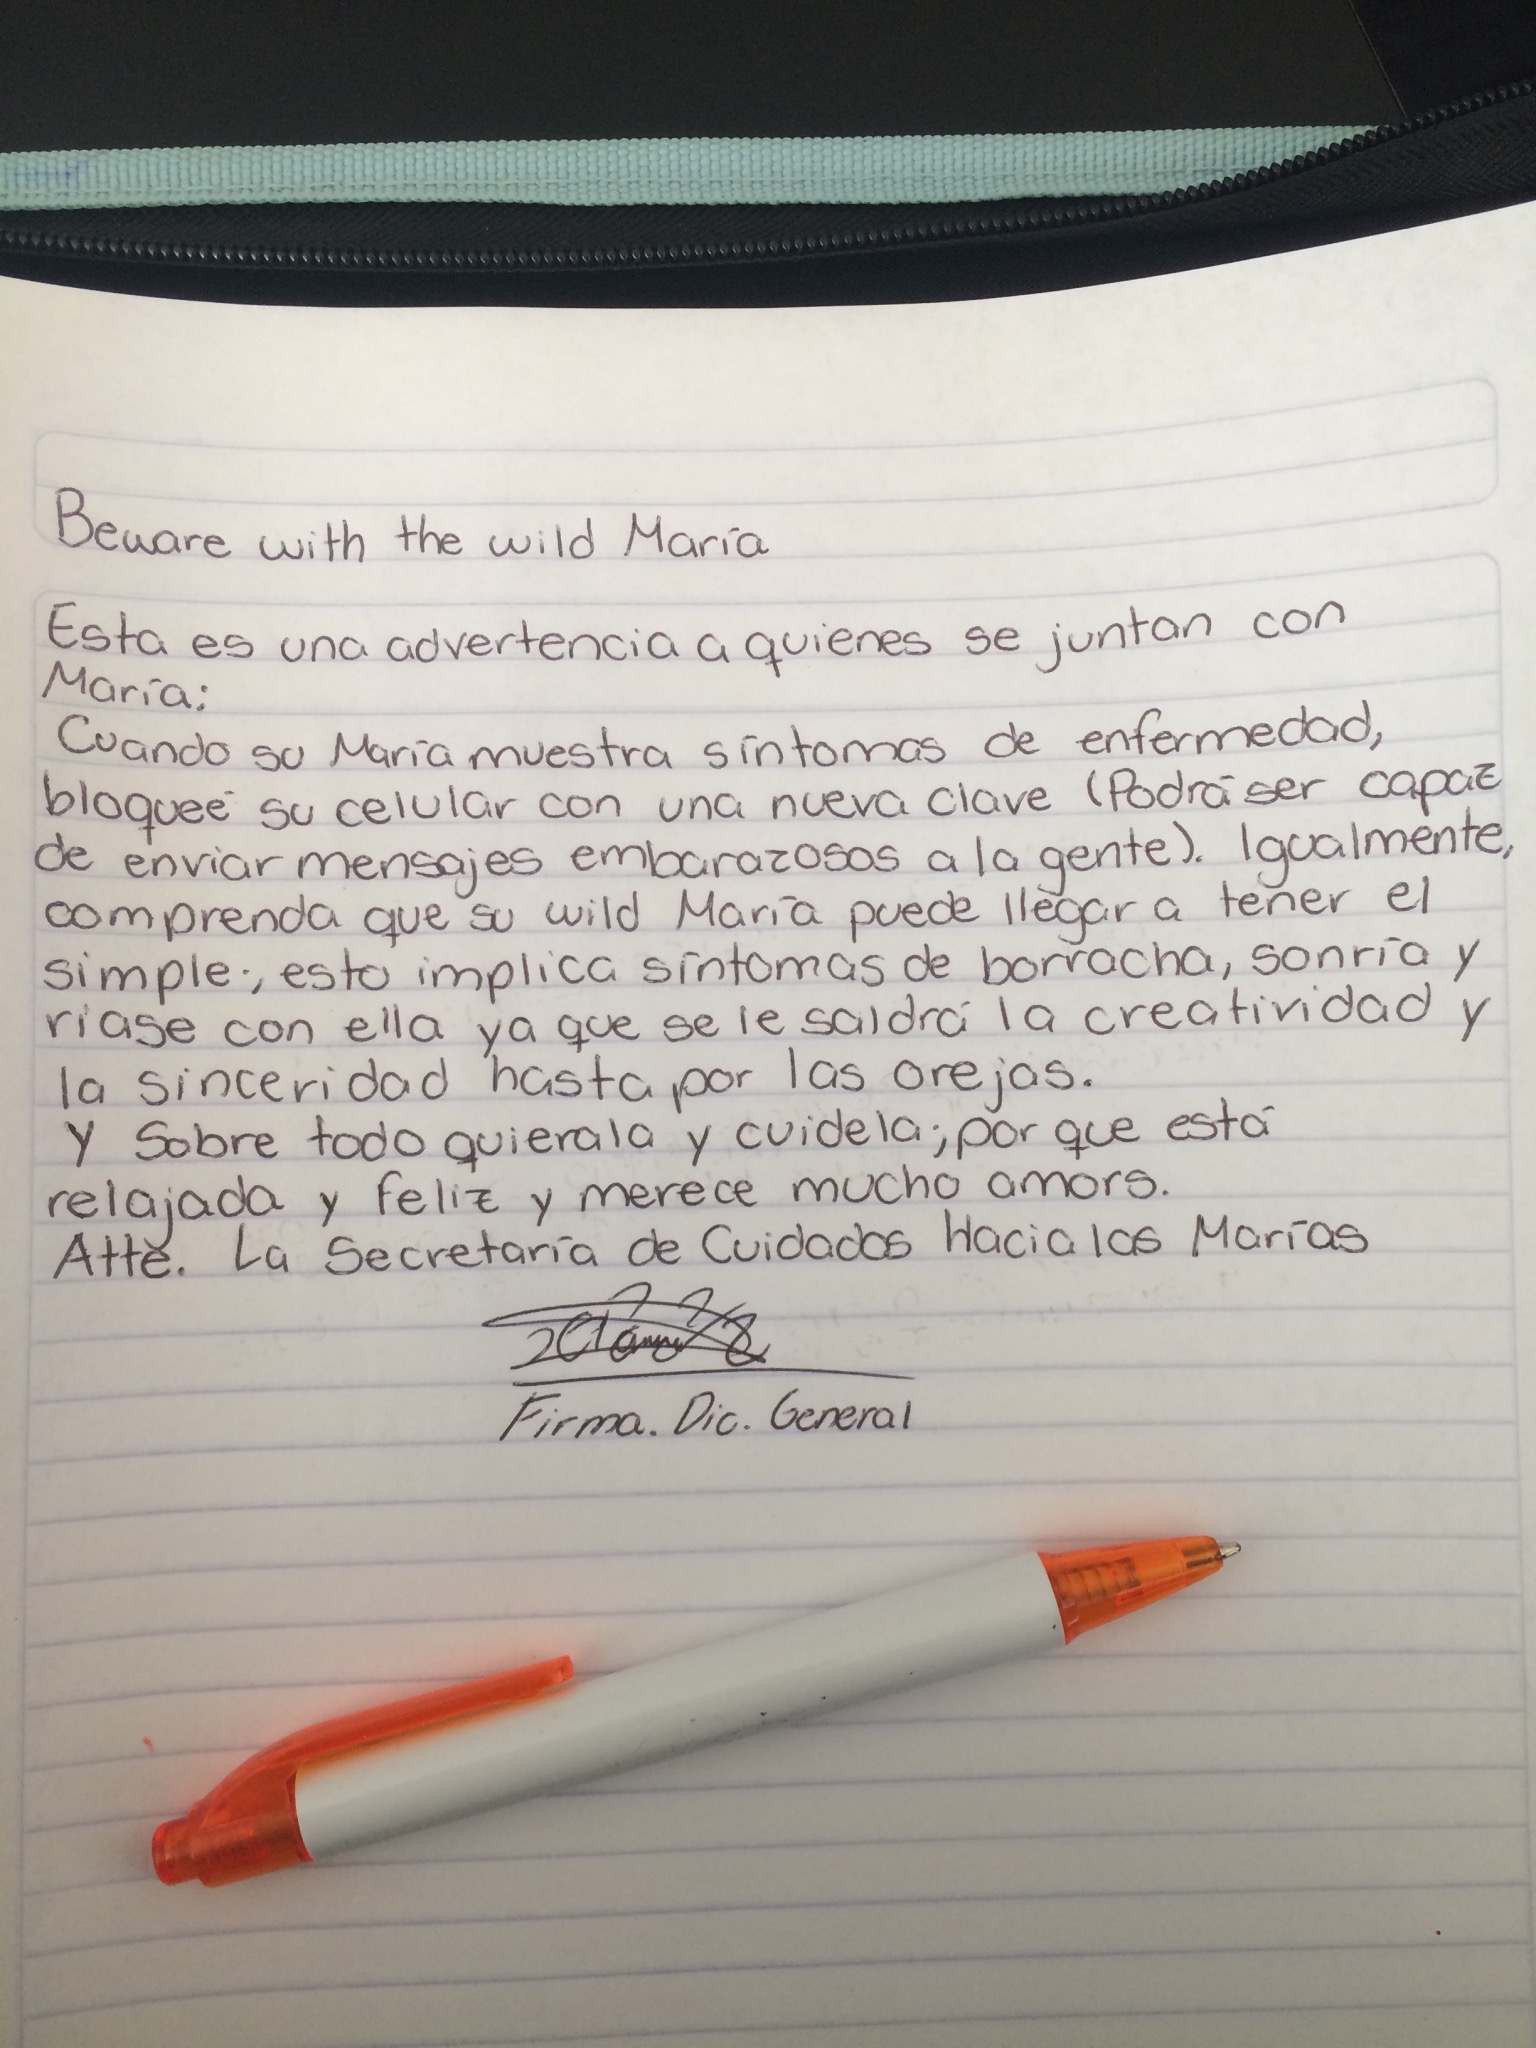 Beware with the wild María
Esta es una advertencia a quienes se juntan con
María:
Cuando su María muestra síntomas de enfermedad,
bloqueé su celular con una nueva clave (Podrá ser capaz
de enviar mensajes embarazosos a la gente). Igualmente,
comprenda que su wild María puede llegar a tener el
simple;, esto implica síntomas de borracha, sonría y
ríase con ella ya que se le saldrá la creatividad y
la sinceridad hasta por las orejas.
Y Sobre todo quierala y cuidela; por que está
relajada y feliz y merece mucho amors.
Atte. La Secretaría de Cuidados Hacia las Marías
Firma. Dic. General